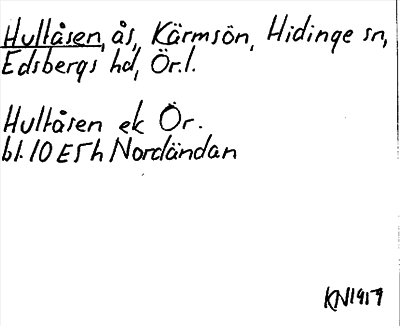 Hultåsen, ås, Kärmsön, Hidinge sn,
Edsbergs hd, Ör.l.
Hultåsen ek Ör.
bl. 10 E5h Nordändan
KN1959